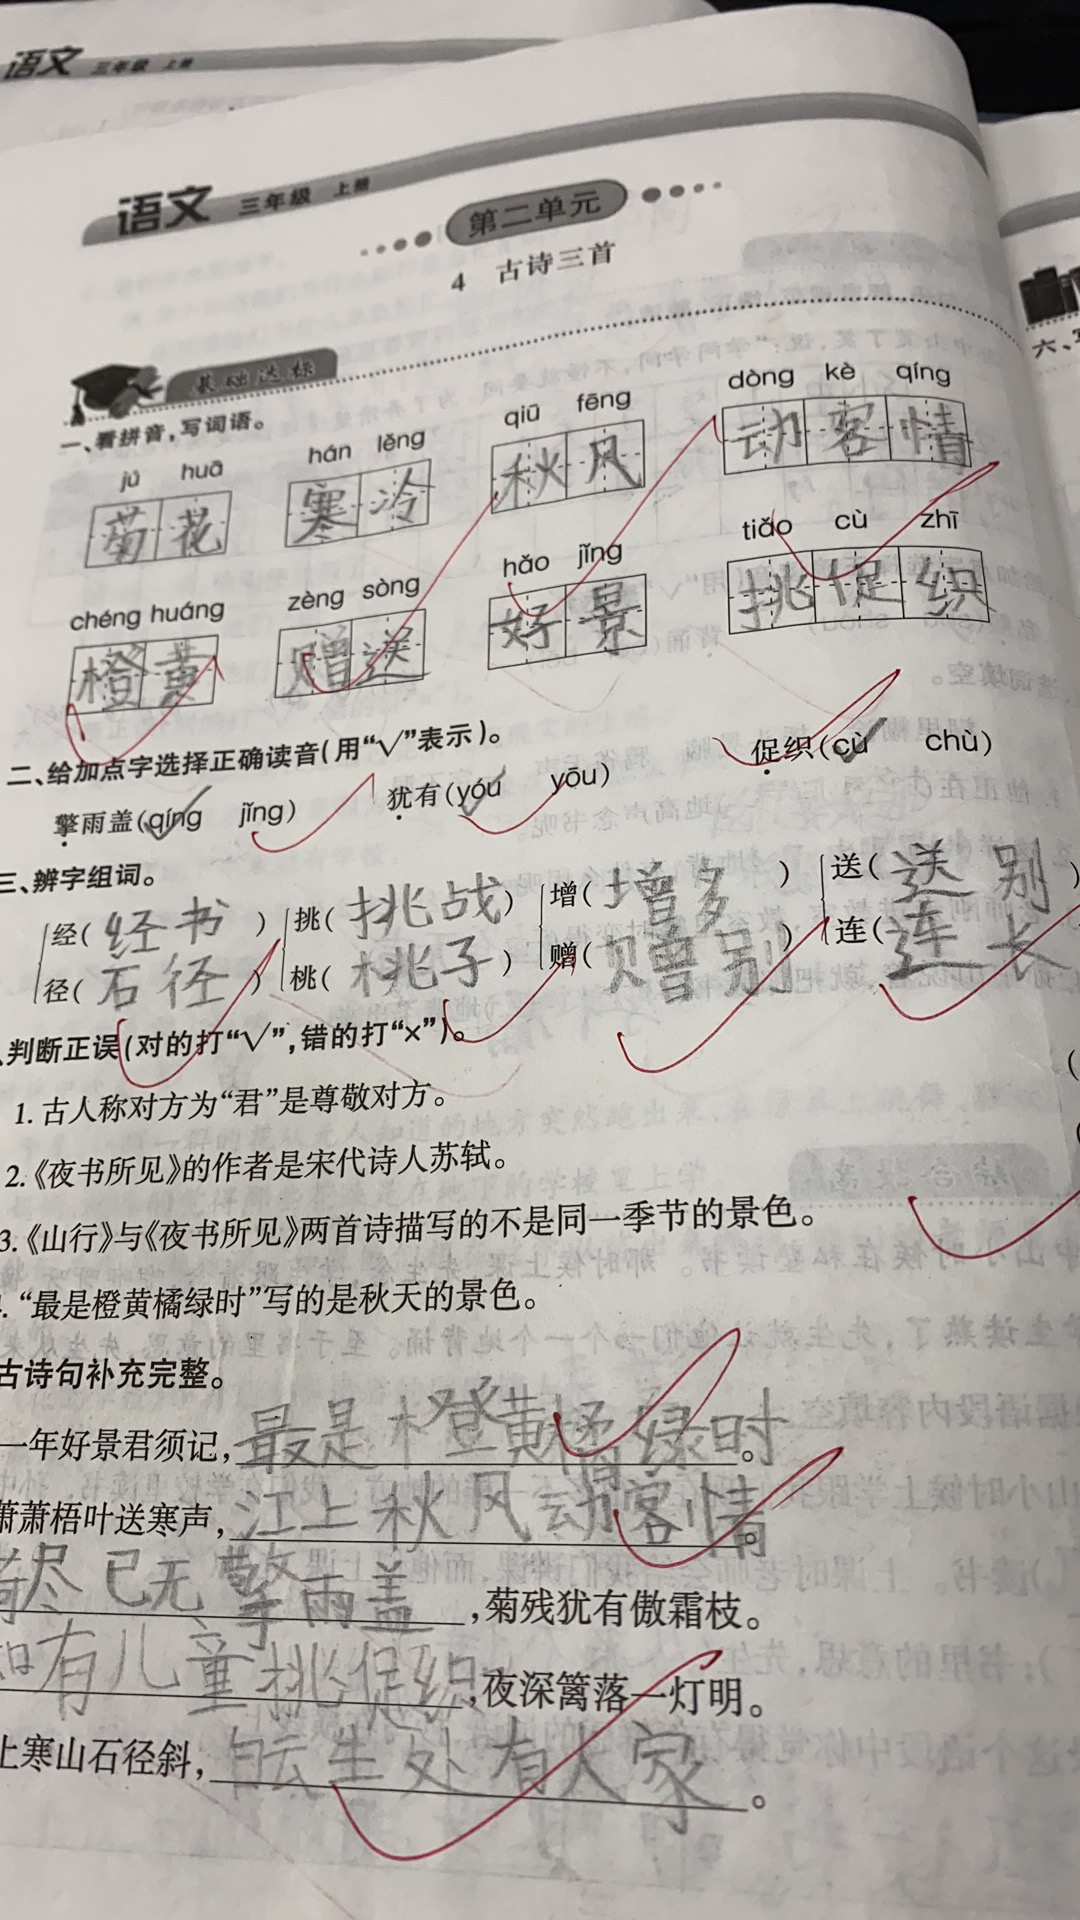 语文 三年级 上册
语文 三年级 上册
第二单元
4 古诗三首
基础达标
一、看拼音,写词语。
jú huā hán lěng qiū fēng dòng kè qíng
菊花 寒冷 秋风 动客情
chéng huáng zèng sòng hǎo jǐng tiǎo cù zhī
橙黄 赠送 好景 挑促织
二、给加点字选择正确读音(用“√”表示)。
擎雨盖(qíng√ jǐng) 犹有(yóu√ yōu) 促织(cù√ chù)
三、辨字组词。
经(经书) 挑(挑战) 增(增多) 送(送别)
径(石径) 桃(桃子) 赠(赠别) 连(连长
、判断正误(对的打“√”,错的打“×”)。
1. 古人称对方为“君”是尊敬对方。
2.《夜书所见》的作者是宋代诗人苏轼。
3.《山行》与《夜书所见》两首诗描写的不是同一季节的景色。
. “最是橙黄橘绿时”写的是秋天的景色。
古诗句补充完整。
一年好景君须记,最是橙黄橘绿时。
萧萧梧叶送寒声,江上秋风动客情。
荷尽已无擎雨盖,菊残犹有傲霜枝。
知有儿童挑促织,夜深篱落一灯明。
上寒山石径斜,白云生处有人家。
六、